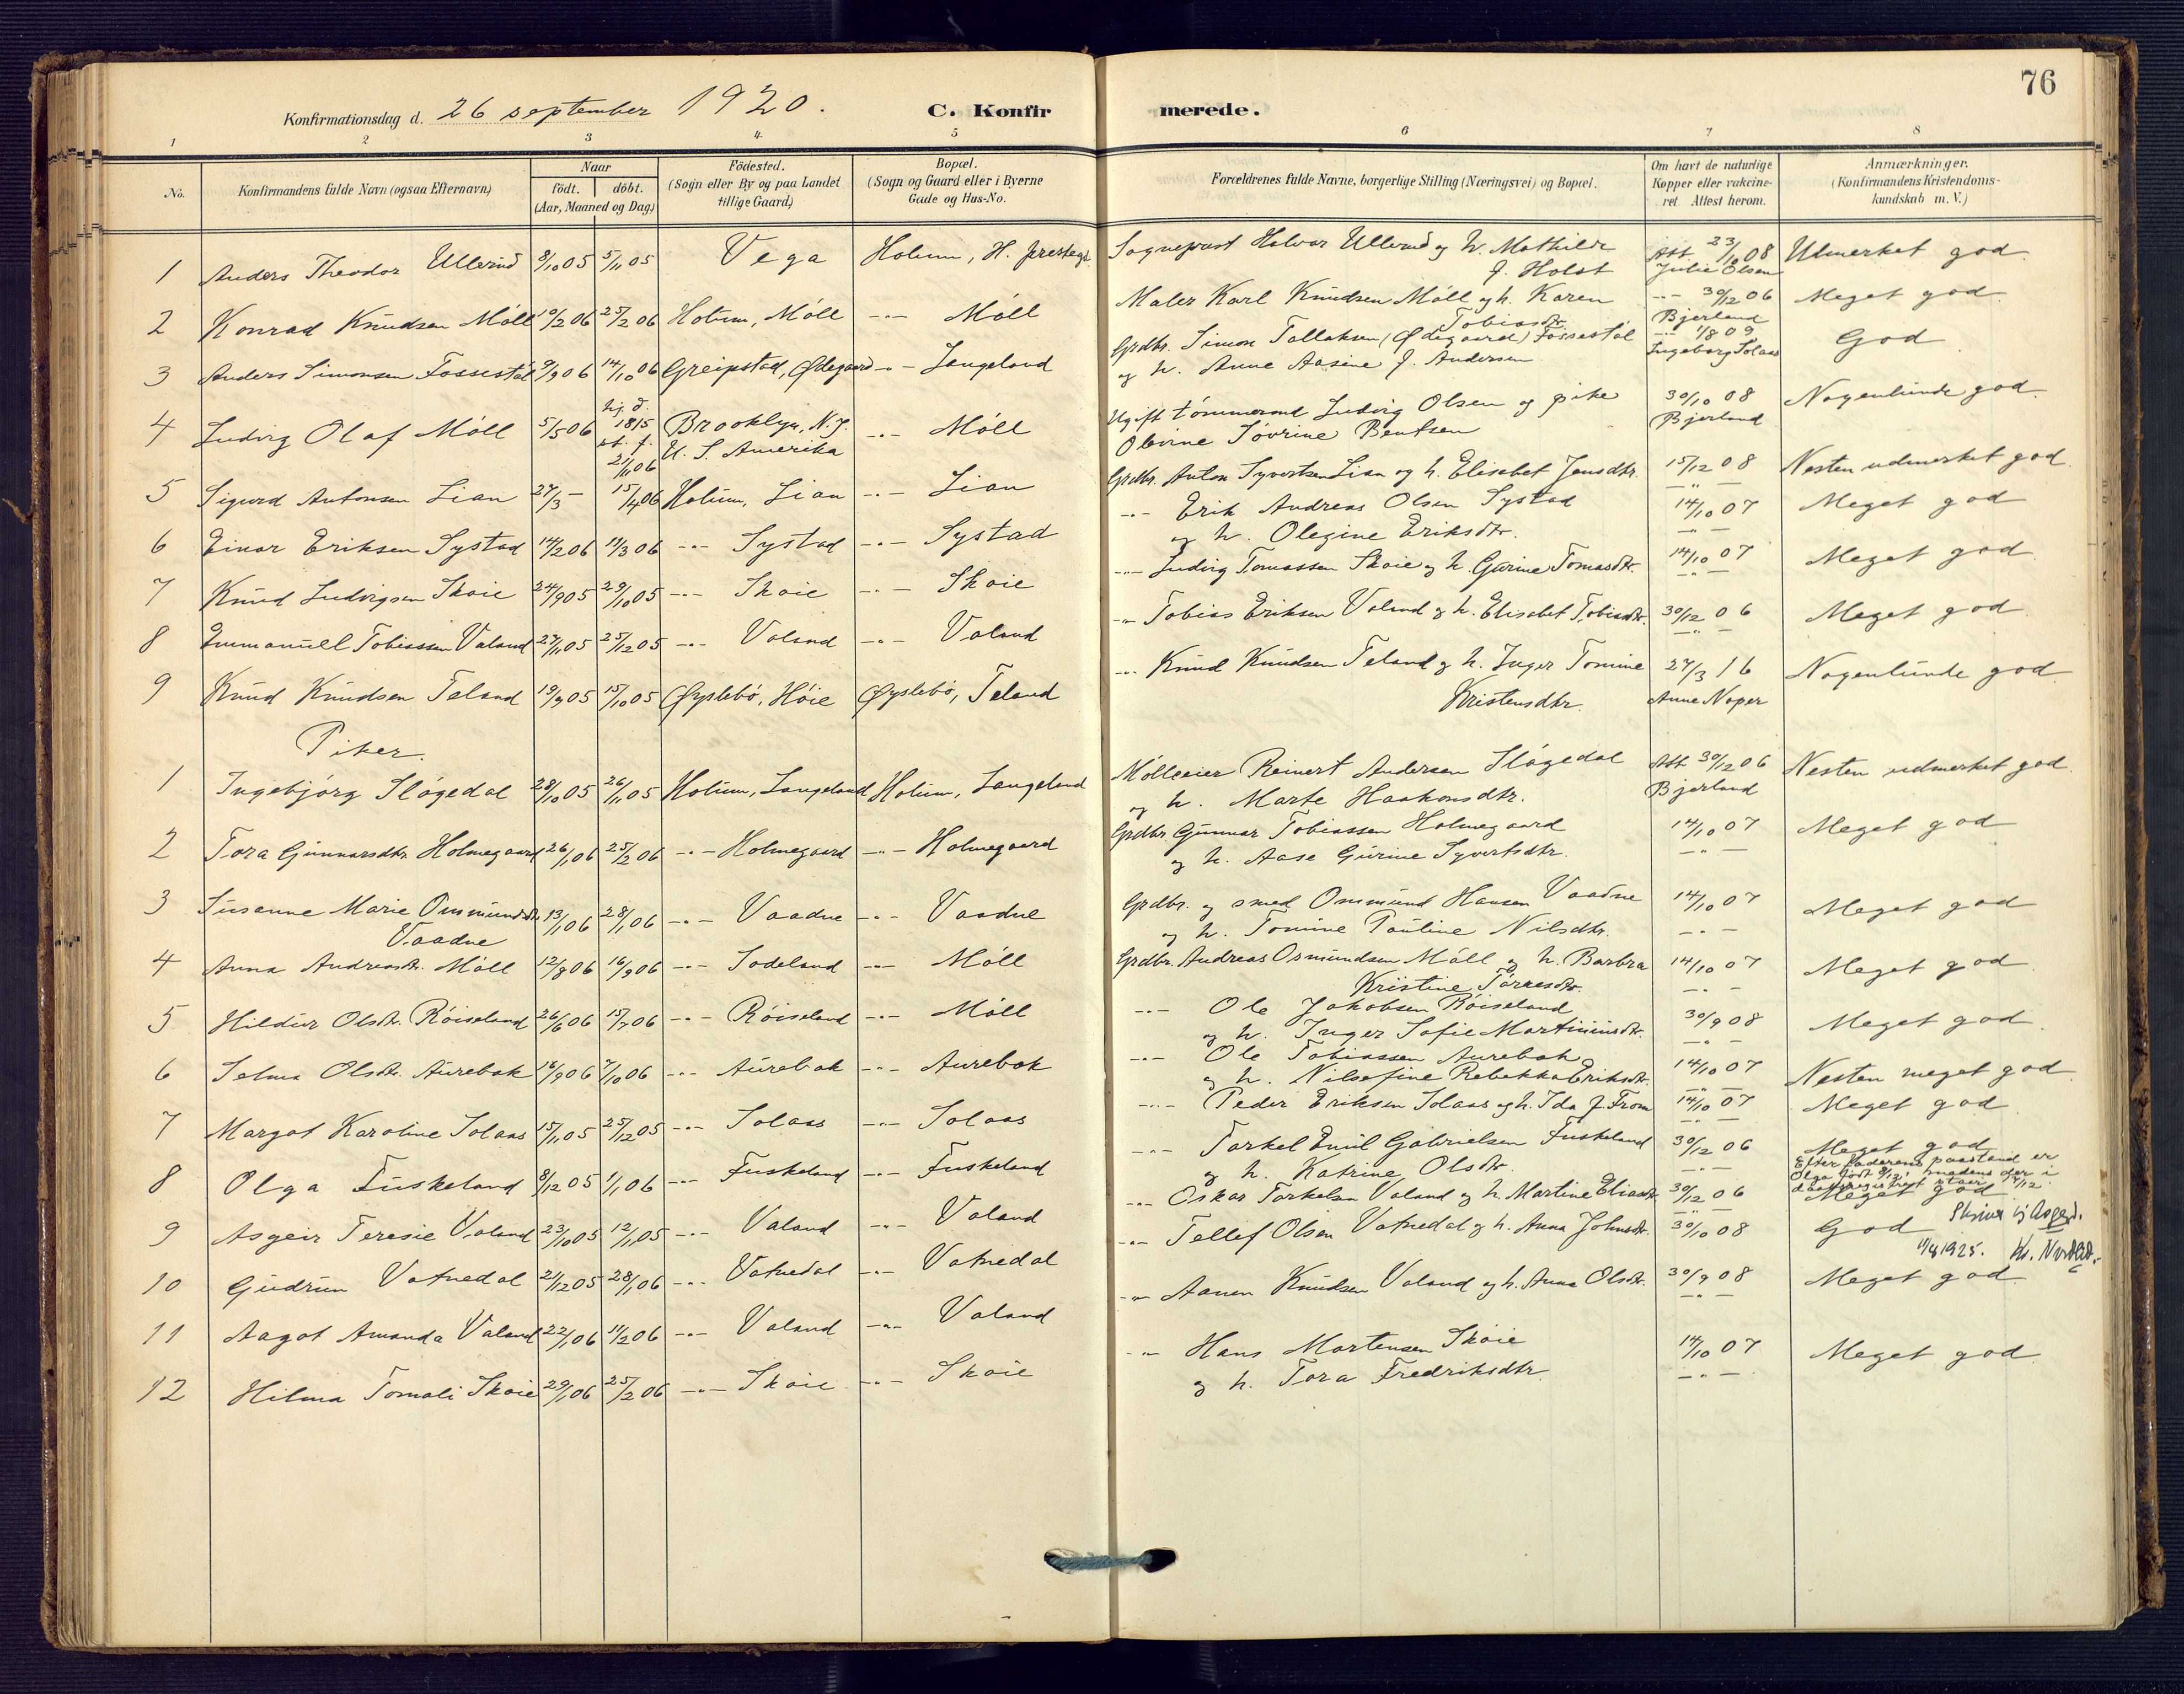 76
Konfirmationsdag d. 26 september 1920. C. Konfirmerede.
1 2 3 4. 5 6 7 8
No. Konfirmandens fulde Navn (ogsaa Efternavn) Naar födt. döbt. (Aar, Maaned og Dag.) Födested. (Sogn eller By og paa Landet tillige Gaard.) Bopæl. (Sogn og Gaard eller i Byerne Gade og Hus-No. Forældrenes fulde Navne, borgerlige Stilling (Næringsvei) og Bopæl. Om havt de naturlige Kopper eller vakcineret. Attest herom. Anmærkninger. (Konfirmandens Kristendomskundskab m. V.)
1 Anders Theodor Ullerud 8/10 05 5/11 05 Vega Holum, H. prestegd. Sogneprest Halvor Ullerud og h. Mathilde f. Holst Att. 23/10 08 Julie Olsen Utmerket god.
2 Konrad Knudsen Möll 10/2 06 25/2 06 Holum, Möll -"- Möll Maler Karl Knudsen Möll og h. Karen Tobiasdtr. -"- 30/12 06 Bjerland Meget god.
3 Anders Simonsen Fossestöl 9/9 06 14/10 06 Greipstad, Ødegaard -"- Langeland Grdbr. Simon Tallaksen (Ødegaard) Fossestöl og h. Anne Aasine f. Andersen -"- 1/8 09 Ingeborg Solaas God
4 Ludvig Olaf Möll 5/5 06 hj. d. 18/5 st. f. 21/11 06 Brooklyn, N.J. U. S. Amerika -"- Möll Ugift tömmermd Ludvig Olsen og pike Olevine Sövrine Bentsen 30/10 08 Bjerland Nogenlunde god.
5 Sigurd Antonsen Lian 27/3 - 15/4 06 Holum, Lian -"- Lian Grdbr. Anton Syvertsen Lian og h. Elisabet Jensdtr. 15/12 08 -"- Nesten udmerket god.
6 Einar Eriksen Systad 14/2 06 11/3 06 -"- Systad -"- Systad -"- Erik Andreas Olsen Systad og h. Olegine Eriksdtr. 14/10 07 -"- Meget god
7 Knud Ludvigsen Skoie 24/9 05 29/10 05 -"- Skoie -"- Skoie -"- Ludvig Tomassen Skoie og h. Gurine Tomasdtr. 14/10 07 -"- Meget god.
8 Emmanuell Tobiassen Valand 27/11 05 25/12 05 -"- Valand -"- Valand -"- Tobias Eriksen Valand og h. Elisabet Tobiasdtr. 30/12 06 -"- Meget god.
9 Knud Knudsen Teland 19/9 05 15/10 05 Øyslebö, Höie Øyslebö, Teland -"- Knud Knudsen Teland og h. Inger Tomine Kristensdtr. 27/3 16 Anne Noper Nogenlunde god.
Piker.
1 Ingebjörg Slögedal 28/10 05 26/11 05 Holum, Langeland Holum, Langeland Mölleeier Reinert Andersen Slögedal og h. Marte Haakonsdtr. Att. 30/12 06 Bjerland Nesten udmerket god.
2 Tora Gunnarsdtr. Holmegaard 26/1 06 25/2 06 -"- Holmegaard -"- Holmegaard Grdbr Gunnar Tobiassen Holmegaard og h. Aase Gurine Syvertsdtr. 14/10 07 -"- Meget god
3 Susanne Marie Ommundsdtr. Vaadne 13/1 06 28/1 06 -"- Vaadne -"- Vaadne Grdbr. og smed Ommund Hansen Vaadne og h. Tomine Pauline Nilsdtr. 14/10 07 -"- Meget god
4 Anna Andreasdtr. Möll 12/8 06 16/9 06 -"- Sodeland -"- Möll Grdbr. Andreas Osmundsen Möll og h. Barbra Kristine Tarresdtr. 14/10 07 -"- Meget god
5 Hildur Olsdtr. Röiseland 26/6 06 15/7 06 -"- Röiseland -"- Möll -"- Ole Jakobsen Röiseland og h. Inger Sofie Martiniusdtr. 30/9 08 -"- Meget god.
6 Selma Olsdtr. Aurebak 16/9 06 7/10 06 -"- Aurebak -"- Aurebak -"- Ole Tobiassen Aurebak og h. Nilsefine Rebekka Eriksdtr. 14/10 07 -"- Nesten meget god
7 Margot Karoline Solaas 15/11 05 25/12 05 -"- Solaas -"- Solaas -"- Peder Eriksen Solaas og h. Ida f. From 14/10 07 -"- Meget god
8 Olga Fuskeland 8/12 05 1/1 06 -"- Fuskeland -"- Fuskeland -"- Tarkel Emil Gabrielsen Fuskeland og h. Katrine Olsdtr. 30/12 06 -"- Meget god Efter faderens paastand er Olga födt 9/12, medens der i daabsregistret staar 8/12.
9 Asgeir Teresie Valand 23/10 05 12/11 05 -"- Valand -"- Valand -"- Oskar Tarkelsen Valand og h. Martine Eliasdtr. 30/12 06 -"- Meget god Skriver sig Asgerd. 11/4 1925.
10 Gudrun Vatnedal 21/12 05 28/1 06 -"- Vatnedal -"- Vatnedal -"- Tellef Olsen Vatnedal og h. Anna Johnsdtr. 30/10 08 God
11 Aagot Amanda Valand 22/1 06 11/2 06 -"- Valand -"- Valand -"- Aanen Knudsen Valand og h. Anna Olsdtr. 30/9 08 -"- Meget god
12 Hilma Tomali Skoie 29/1 06 25/2 06 -"- Skoie -"- Skoie -"- Hans Martensen Skoie og h. Tora Fredriksdtr. 14/10 07 -"- Meget god